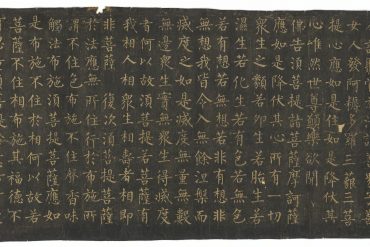 女人發阿耨多羅三藐三菩
提心應如是住如是降伏其
心唯然世尊願樂欲聞
佛告須菩提諸菩薩摩訶薩
應如是降伏其心所有一切
眾生之類若卵生若胎生若
濕生若化生若有色若無色
若有想若無想若非有想非
無想我皆令入無餘涅槃而
滅度之如是滅度無量無數
無邊眾生實無眾生得滅度
者何以故須菩提若菩薩有
我相人相眾生相壽者相即
非菩薩復次須菩提菩薩
於法應無所住行於布施所
謂不住色布施不住聲香味
觸法布施須菩提菩薩應如
是布施不住於相何以故若
菩薩不住相布施其福德不